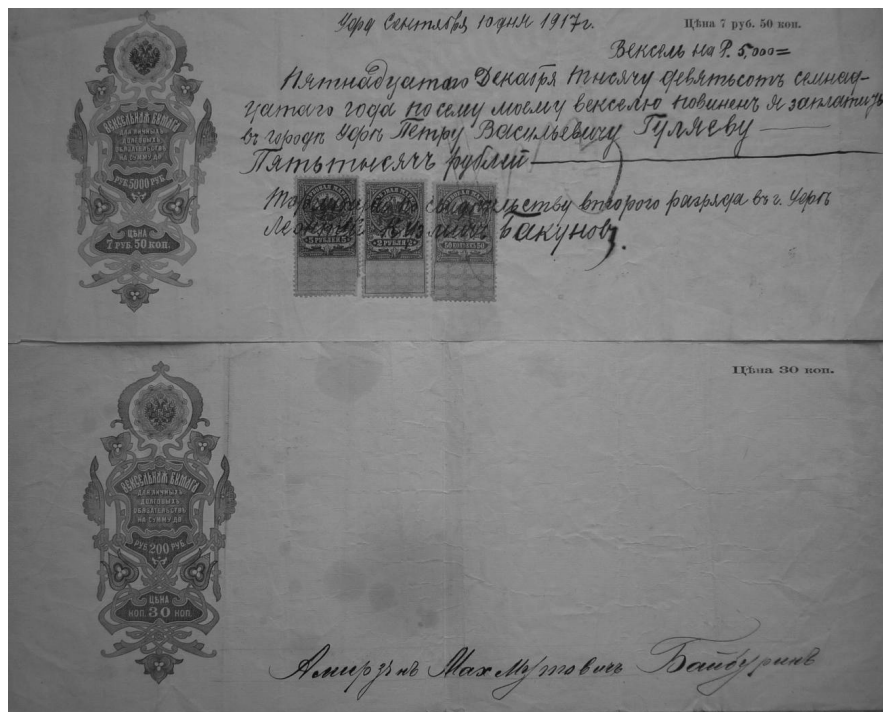 Уфа Сентября 10 дня 1917 г.
Цѣна 7 руб. 50 коп.
Вексель на Р. 5,000=
Пятнадцатаго Декабря тысячу девятьсотъ семнад-
цатаго года по сему моему векселю повиненъ я заплатить
въ городѣ Уфѣ Петру Васильевичу Гуляеву
Пятьтысячъ рублей
свидѣтельству второго разряда въ г. Уфѣ
Бакуновъ.
ВЕКСЕЛЬНАЯ БУМАГА
ДЛЯ ЛИЧНЫХЪ
ДОЛГОВЫХЪ
ОБЯЗАТЕЛЬСТВЪ
НА СУММУ ДО
РУБ. 5000 РУБ.
ЦѢНА
7 РУБ. 50 КОП.
5 РУБЛЕЙ 5
2 РУБЛИ 2
50 КОПѢЕКЪ 50
Цѣна 30 коп.
ВЕКСЕЛЬНАЯ БУМАГА
ДЛЯ ЛИЧНЫХЪ
ДОЛГОВЫХЪ
ОБЯЗАТЕЛЬСТВЪ
НА СУММУ ДО
РУБ. 200 РУБ.
ЦѢНА
КОП. 30 КОП.
Махмутовичъ Байбуринъ